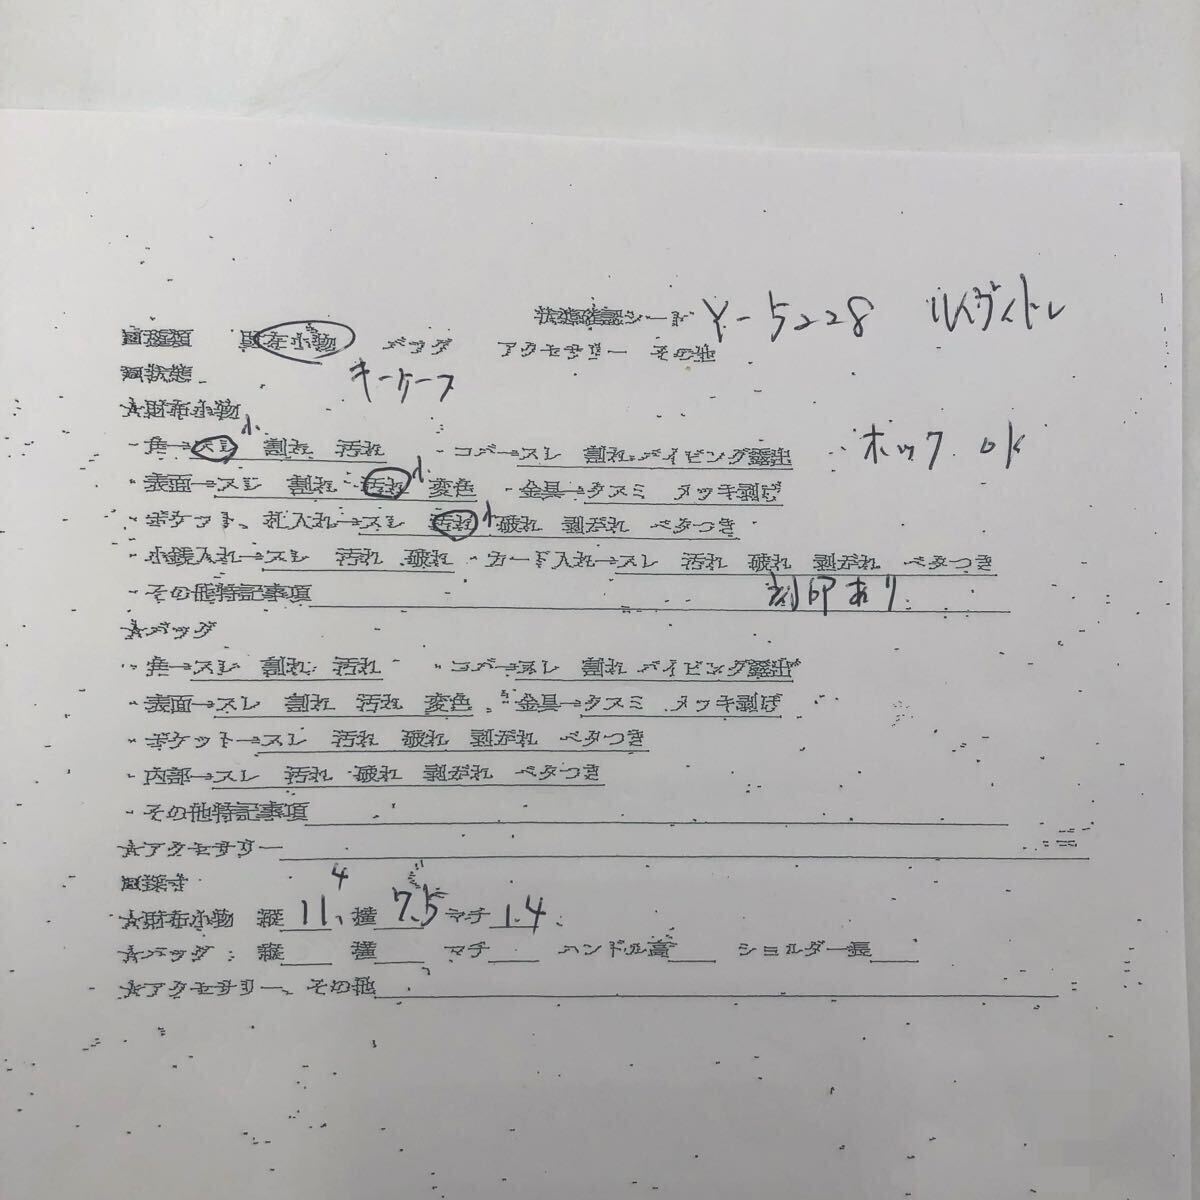 状態確認シート Y-5228 ルイヴィトン
■種類 財布小物 バッグ アクセサリー その他
キーケース
■状態
☆財布小物
・角→スレ 割れ 汚れ ・コバ→スレ 割れ パイピング露出
小
ホック OK
・表面→スレ 割れ 汚れ 変色 ・金具→クスミ メッキ剥げ
小
・ポケット、札入れ→スレ 汚れ 破れ 剥がれ ベタつき
小
・小銭入れ→スレ 汚れ 破れ ・カード入れ→スレ 汚れ 破れ 剥がれ ベタつき
・その他特記事項 刻印あり
☆バッグ
・角→スレ 割れ 汚れ ・コバ→スレ 割れ パイピング露出
・表面→スレ 割れ 汚れ 変色 ・金具→クスミ メッキ剥げ
・ポケット→スレ 汚れ 破れ 剥がれ ベタつき
・内部→スレ 汚れ 破れ 剥がれ ベタつき
・その他特記事項
☆アクセサリー
■採寸
☆財布小物 縦 11.4 横 7.5 マチ 1.4
☆バッグ：縦 横 マチ ハンドル高 ショルダー長
☆アクセサリー、その他